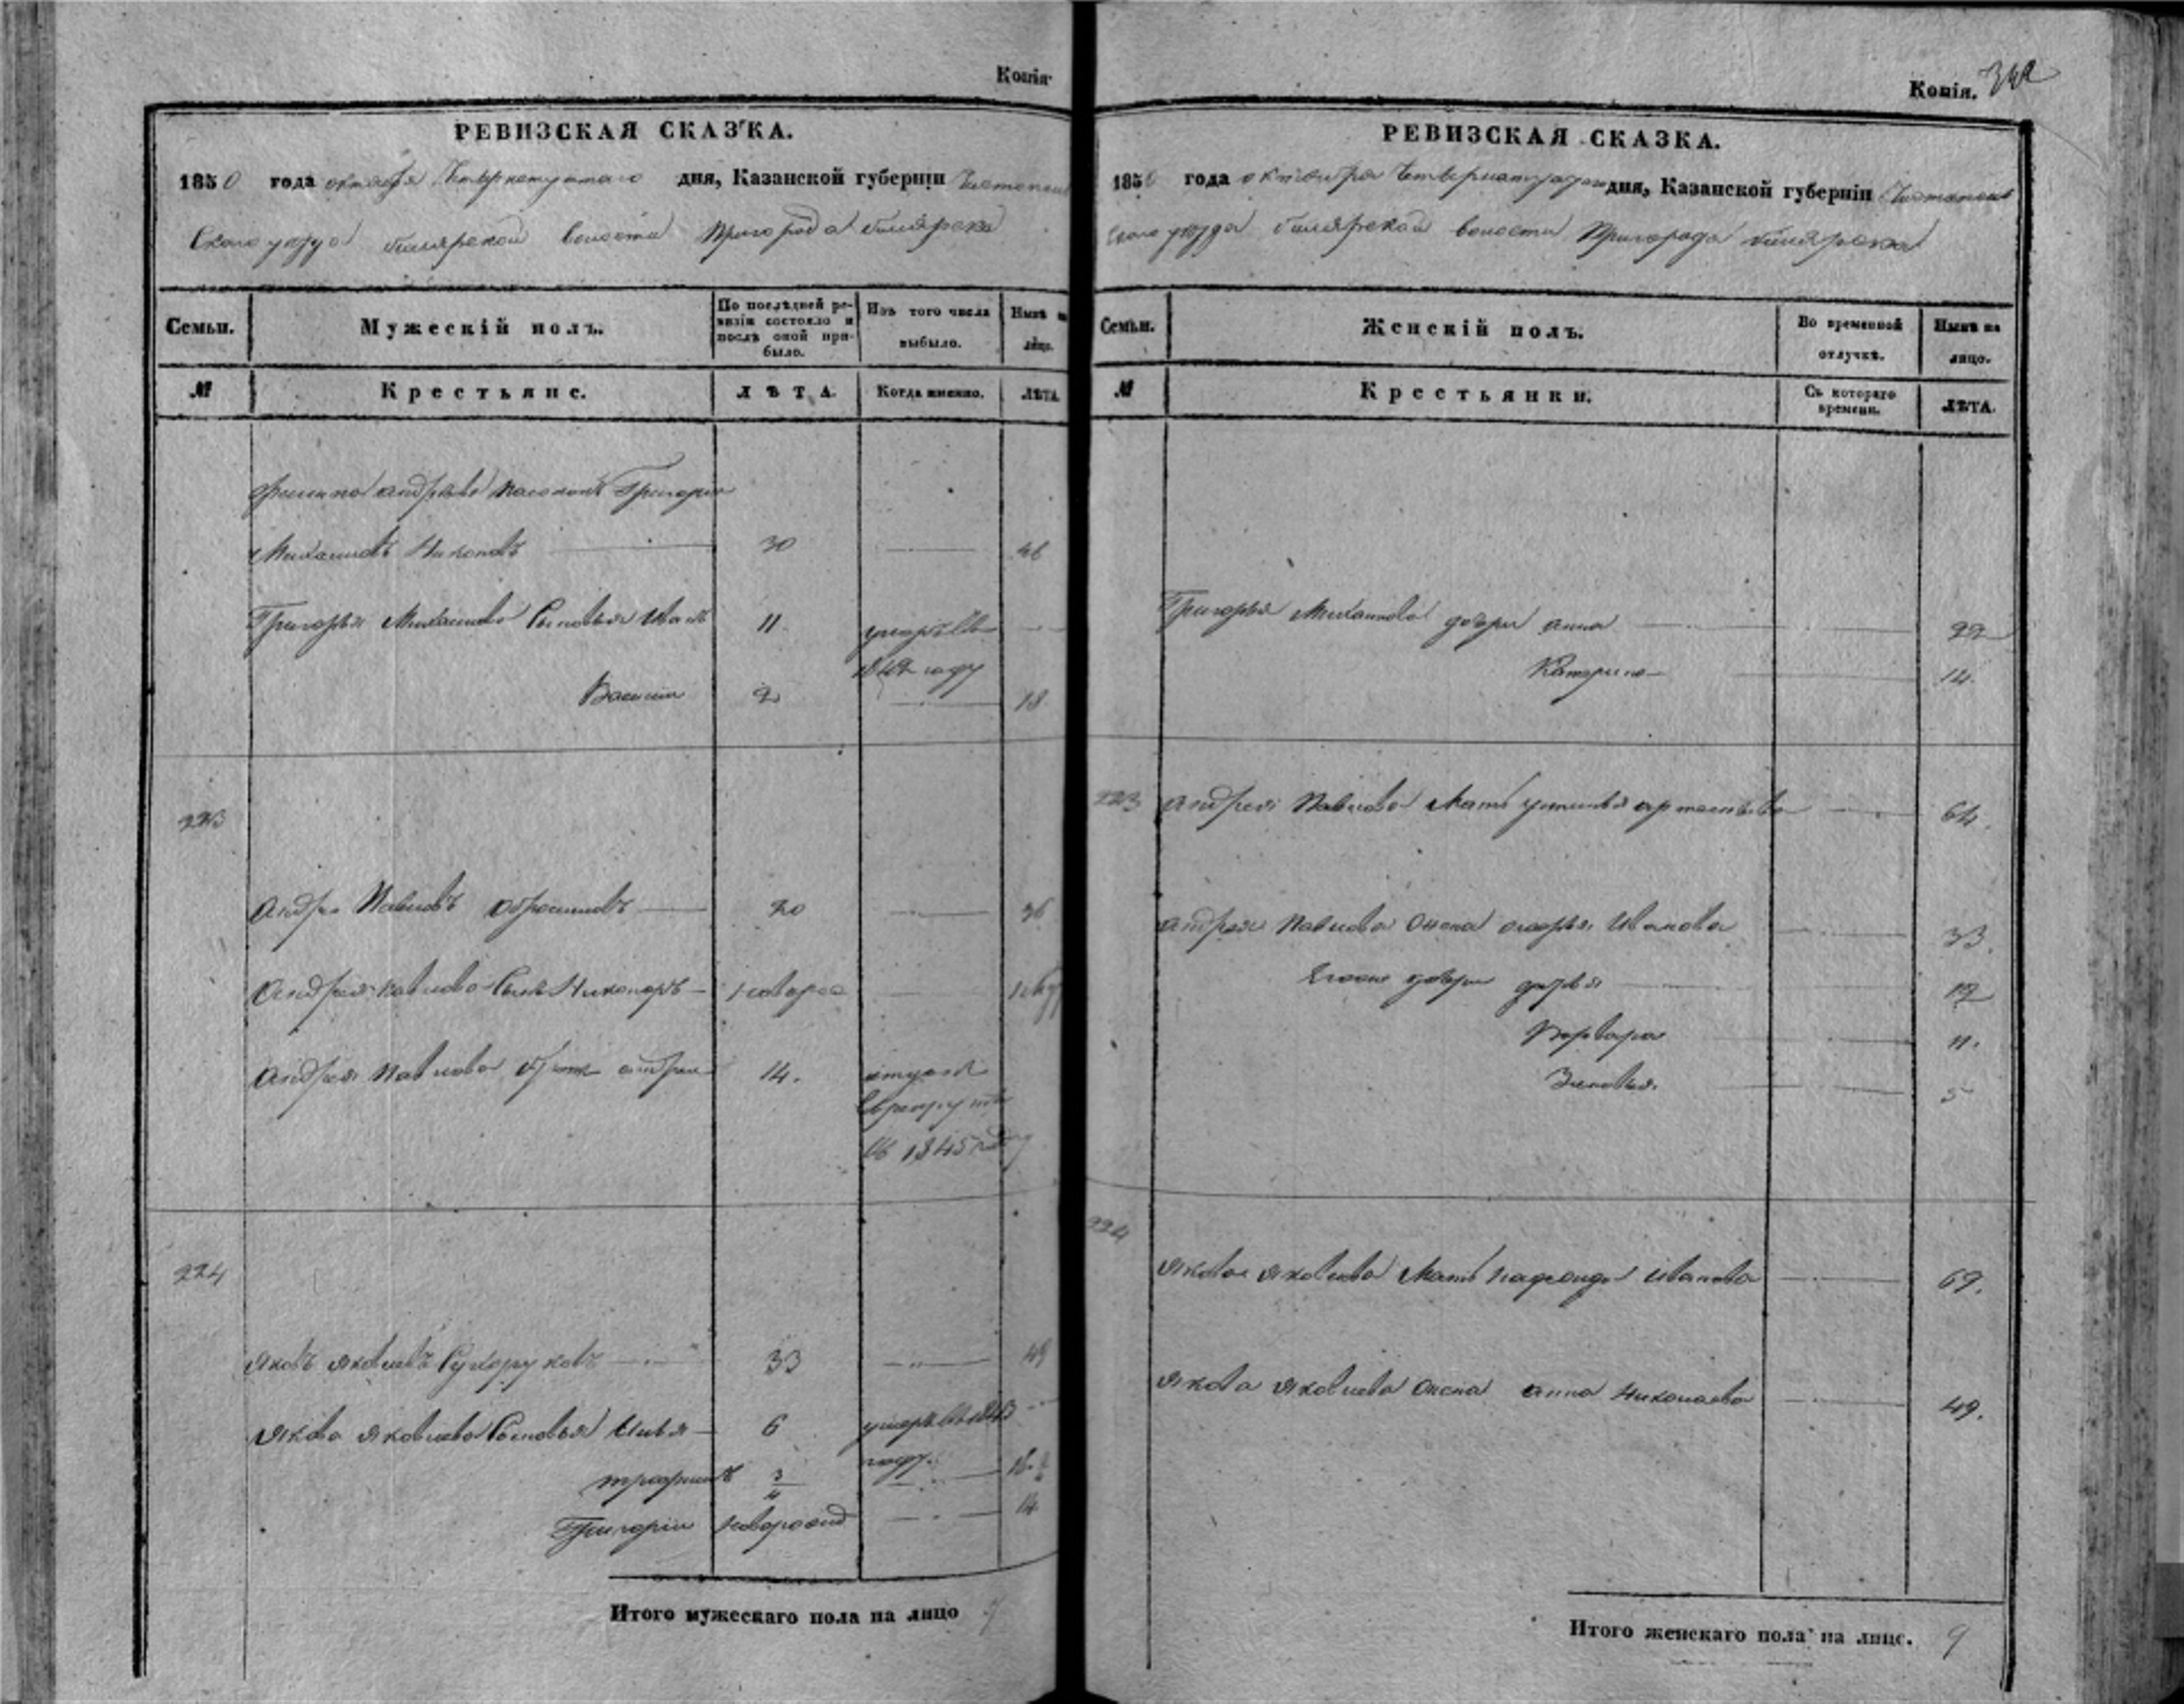 Копія
РЕВИЗСКАЯ СКАЗКА.
1850 года октября Четырнатцатаго дня, Казанской губерніи Чистополь
скаго уезда билярской волости Пригорода билярска
Семьи. Мужескій полъ. По послѣдней ревизіи состояло и послѣ оной прибыло. Изъ того числа выбыло. Нынѣ на лицо.
№ Крестьяне. ЛѢТА. Когда именно. ЛѢТА.
андреева Григорей
Михаиловъ 30 46
Григорья Михаилова Сыновья Иванъ 11 умеръ въ
1842 году
Василии 2 18
223
Андреи Павловъ 20 36
Андрея Павлова Сынъ Никоноръ новорож
Андрея Павлова братъ андреи 14. отданъ
в рекруты
въ 1845 году
224
Яковъ Яковлевъ Сухоруковъ 33 49
Якова Яковлева Сыновья Илья 6 умеръ въ 1843
году.
трофимъ 3/4
Григореи новорожд 14
Итого мужескаго пола на лицо 7
Копія. 342
РЕВИЗСКАЯ СКАЗКА.
1850 года октября Четырнатцатаго дня, Казанской губерніи Чистополь
скаго уезда билярской волости Пригорода билярска
Семьи. Женскій полъ. Во временной отлучкѣ. Нынѣ на лицо.
№ Крестьянки. Съ котораго времени. ЛѢТА.
Григорья Михаилова дочери анна 22
Катерина 14.
223 Андрея Павлова Мать устинья 64.
Андрея Павлова Жена Ивановa 33
дочери дарья 12
Варвара 11.
Зиновья 5
224
Якова Яковлева Мать Ивановa 69.
Якова Яковлева Жена анна Николаева 49.
Итого женскаго пола на лицо. 9